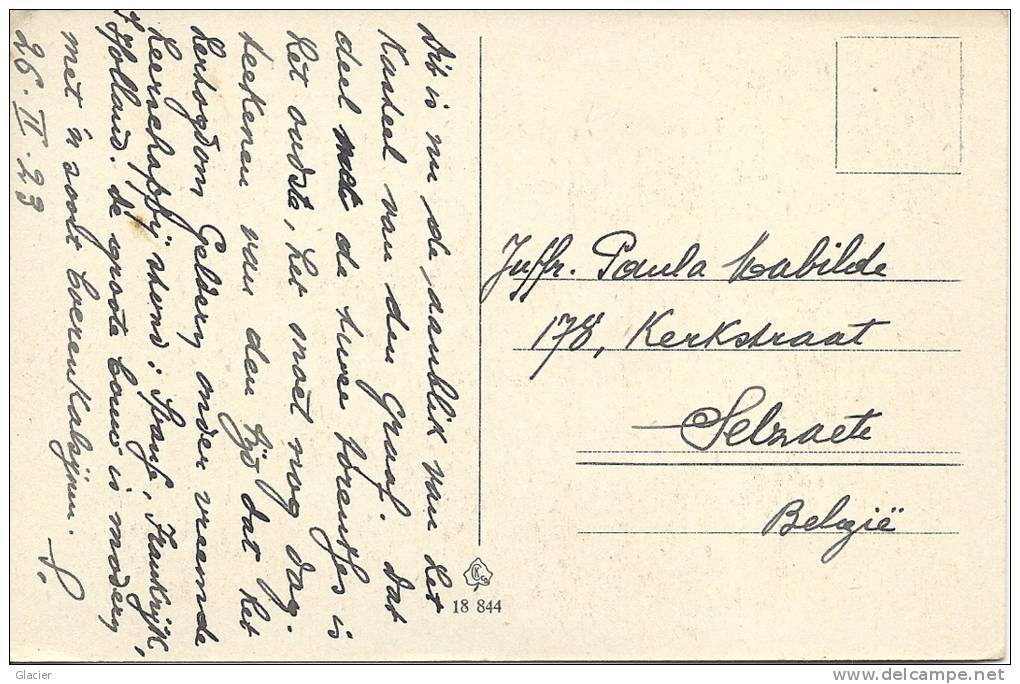 Dit is nu de aanblik van het
Kasteel van den Graaf. Dat
deel met de twee torentjes is
het oudste, het moet nog dag-
teekenen van den tijd dat het
hertogdom Geldern onder vreemde
heerschappij stond: Spanje, Frankrijk,
Holland. de groote bouw is modern
met 'n soort boeren
26.II.23
Juffr. Paula Mabilde
178, Kerkstraat
Selzaete
België
18 844
Glacier
www.delcampe.net